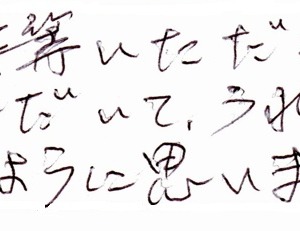 等いただ
だいて、うれ
ように思いま